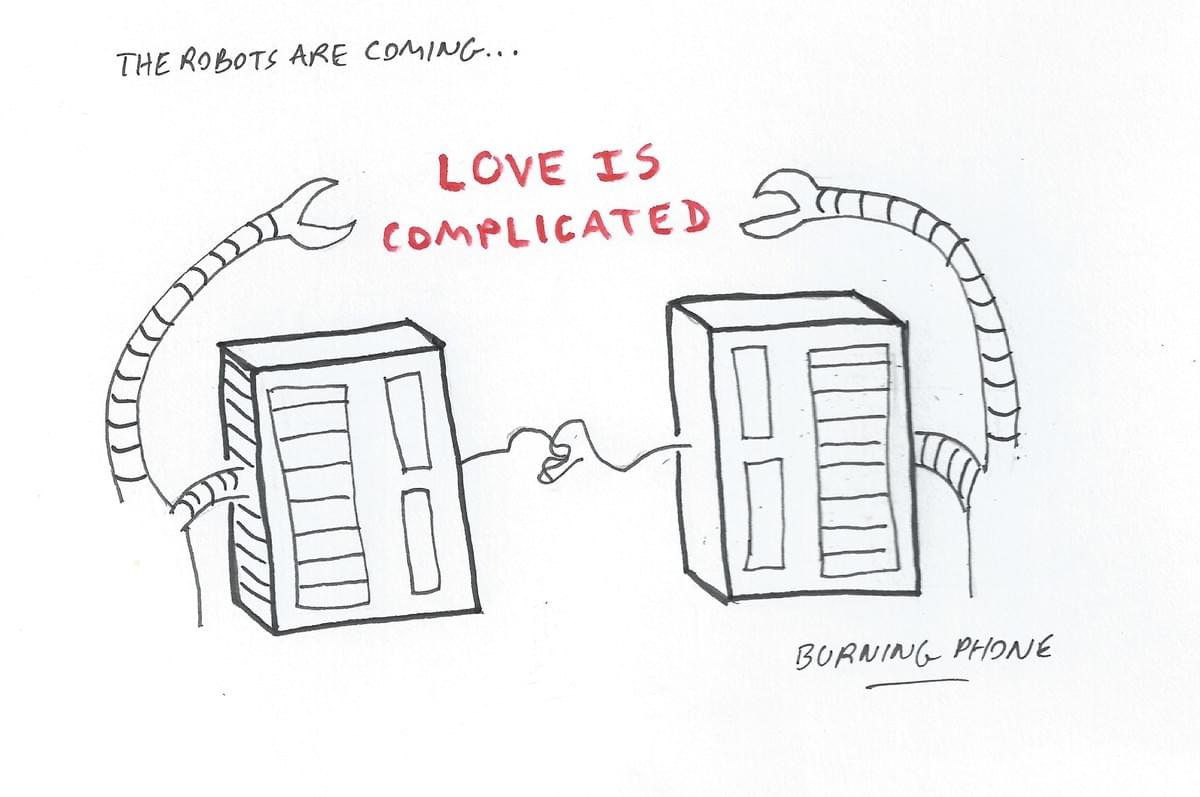 THE ROBOTS ARE COMING...
LOVE IS
COMPLICATED
BURNING PHONE